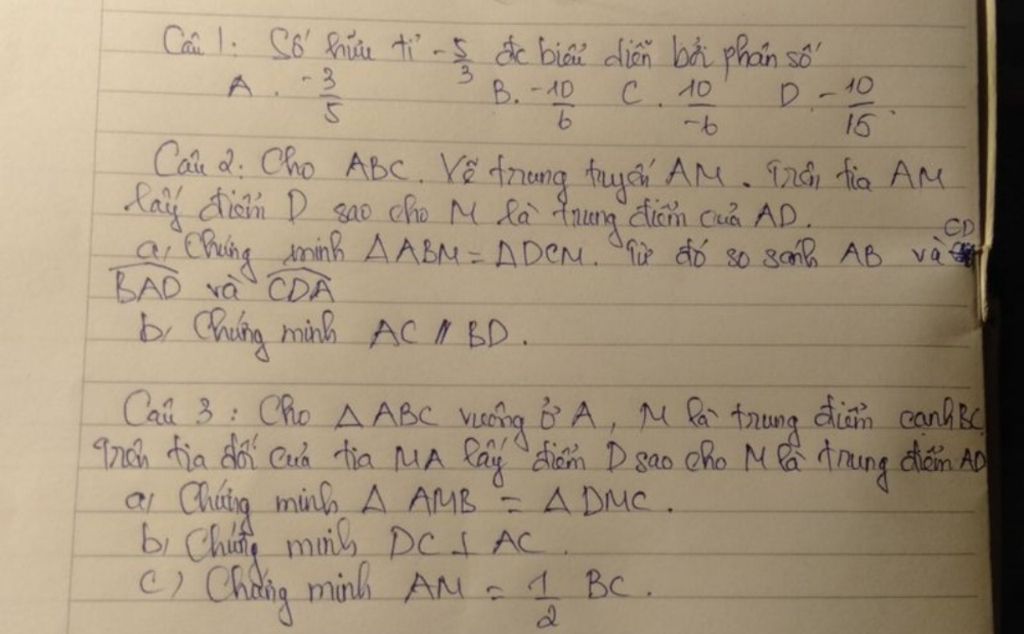 Câu 1: Số hữu tỉ -5/3 đc biểu diễn bởi phân số
A. -3/5 B. -10/6 C. 10/-6 D. -10/15.
Câu 2: Cho ABC. Vẽ trung tuyến AM. Trên tia AM
lấy điểm D sao cho M là trung điểm của AD.
a, Chứng minh ΔABM = ΔDCM. Từ đó so sánh AB và CD
BAD và CDA
b, Chứng minh AC // BD.
Câu 3: Cho ΔABC vuông ở A, M là trung điểm cạnh BC
Trên tia đối của tia MA lấy điểm D sao cho M là trung điểm AD
a, Chứng minh Δ AMB = Δ DMC.
b, Chứng minh DC ⊥ AC.
c) Chứng minh AM = 1/2 BC.